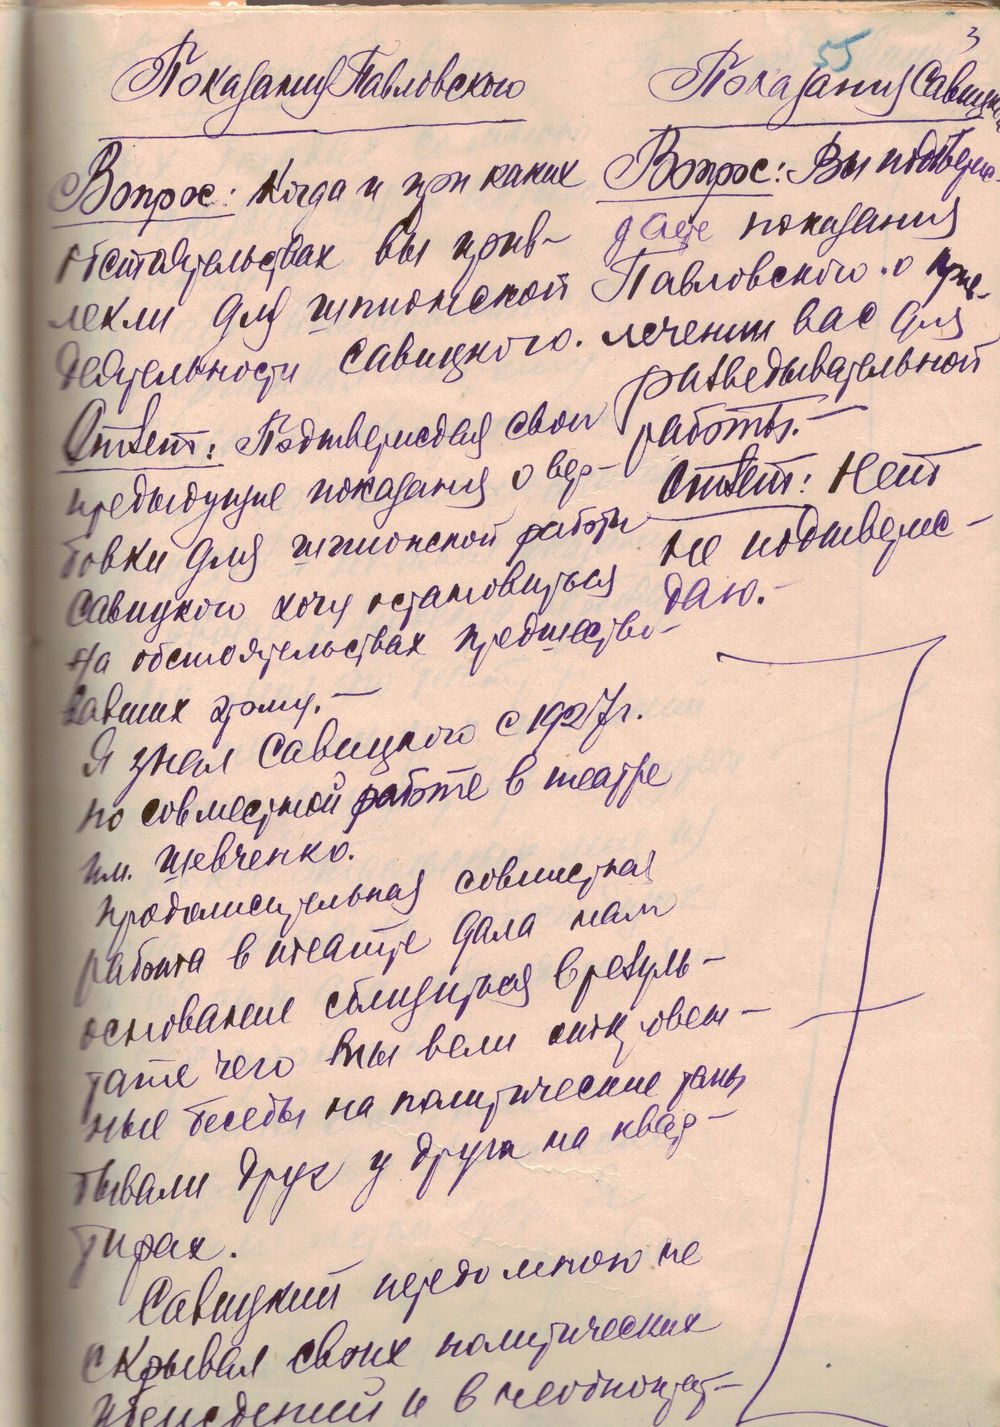 55
3
Показания Павловского
Вопрос: Когда и при каких
обстоятельствах вы прив-
лекли для шпионской
деятельности Савицкого.
Ответ: Подтверждая свои
предыдущие показания о вер-
бовки для шпионской работы
Савицкого хочу остановиться
на обстоятельствах предшество-
вавших этому. —
Я знал Савицкого с 1927 г.
по совместной работе в театре
им. Шевченко.
Продолжительная совместная
работа в театре дала нам
основание сблизиться в резуль-
тате чего мы вели откровен-
ные беседы на политические темы
бывали друг у друга на квар-
тирах.
Савицкий передо мною не
скрывал своих политических
убеждений и в неоднократ-
Показания Савицкого
Вопрос: Вы подтверж-
даете показания
Павловского о прив-
лечении вас для
разведывательной
работы. —
Ответ: Нет
не подтверж-
даю. —